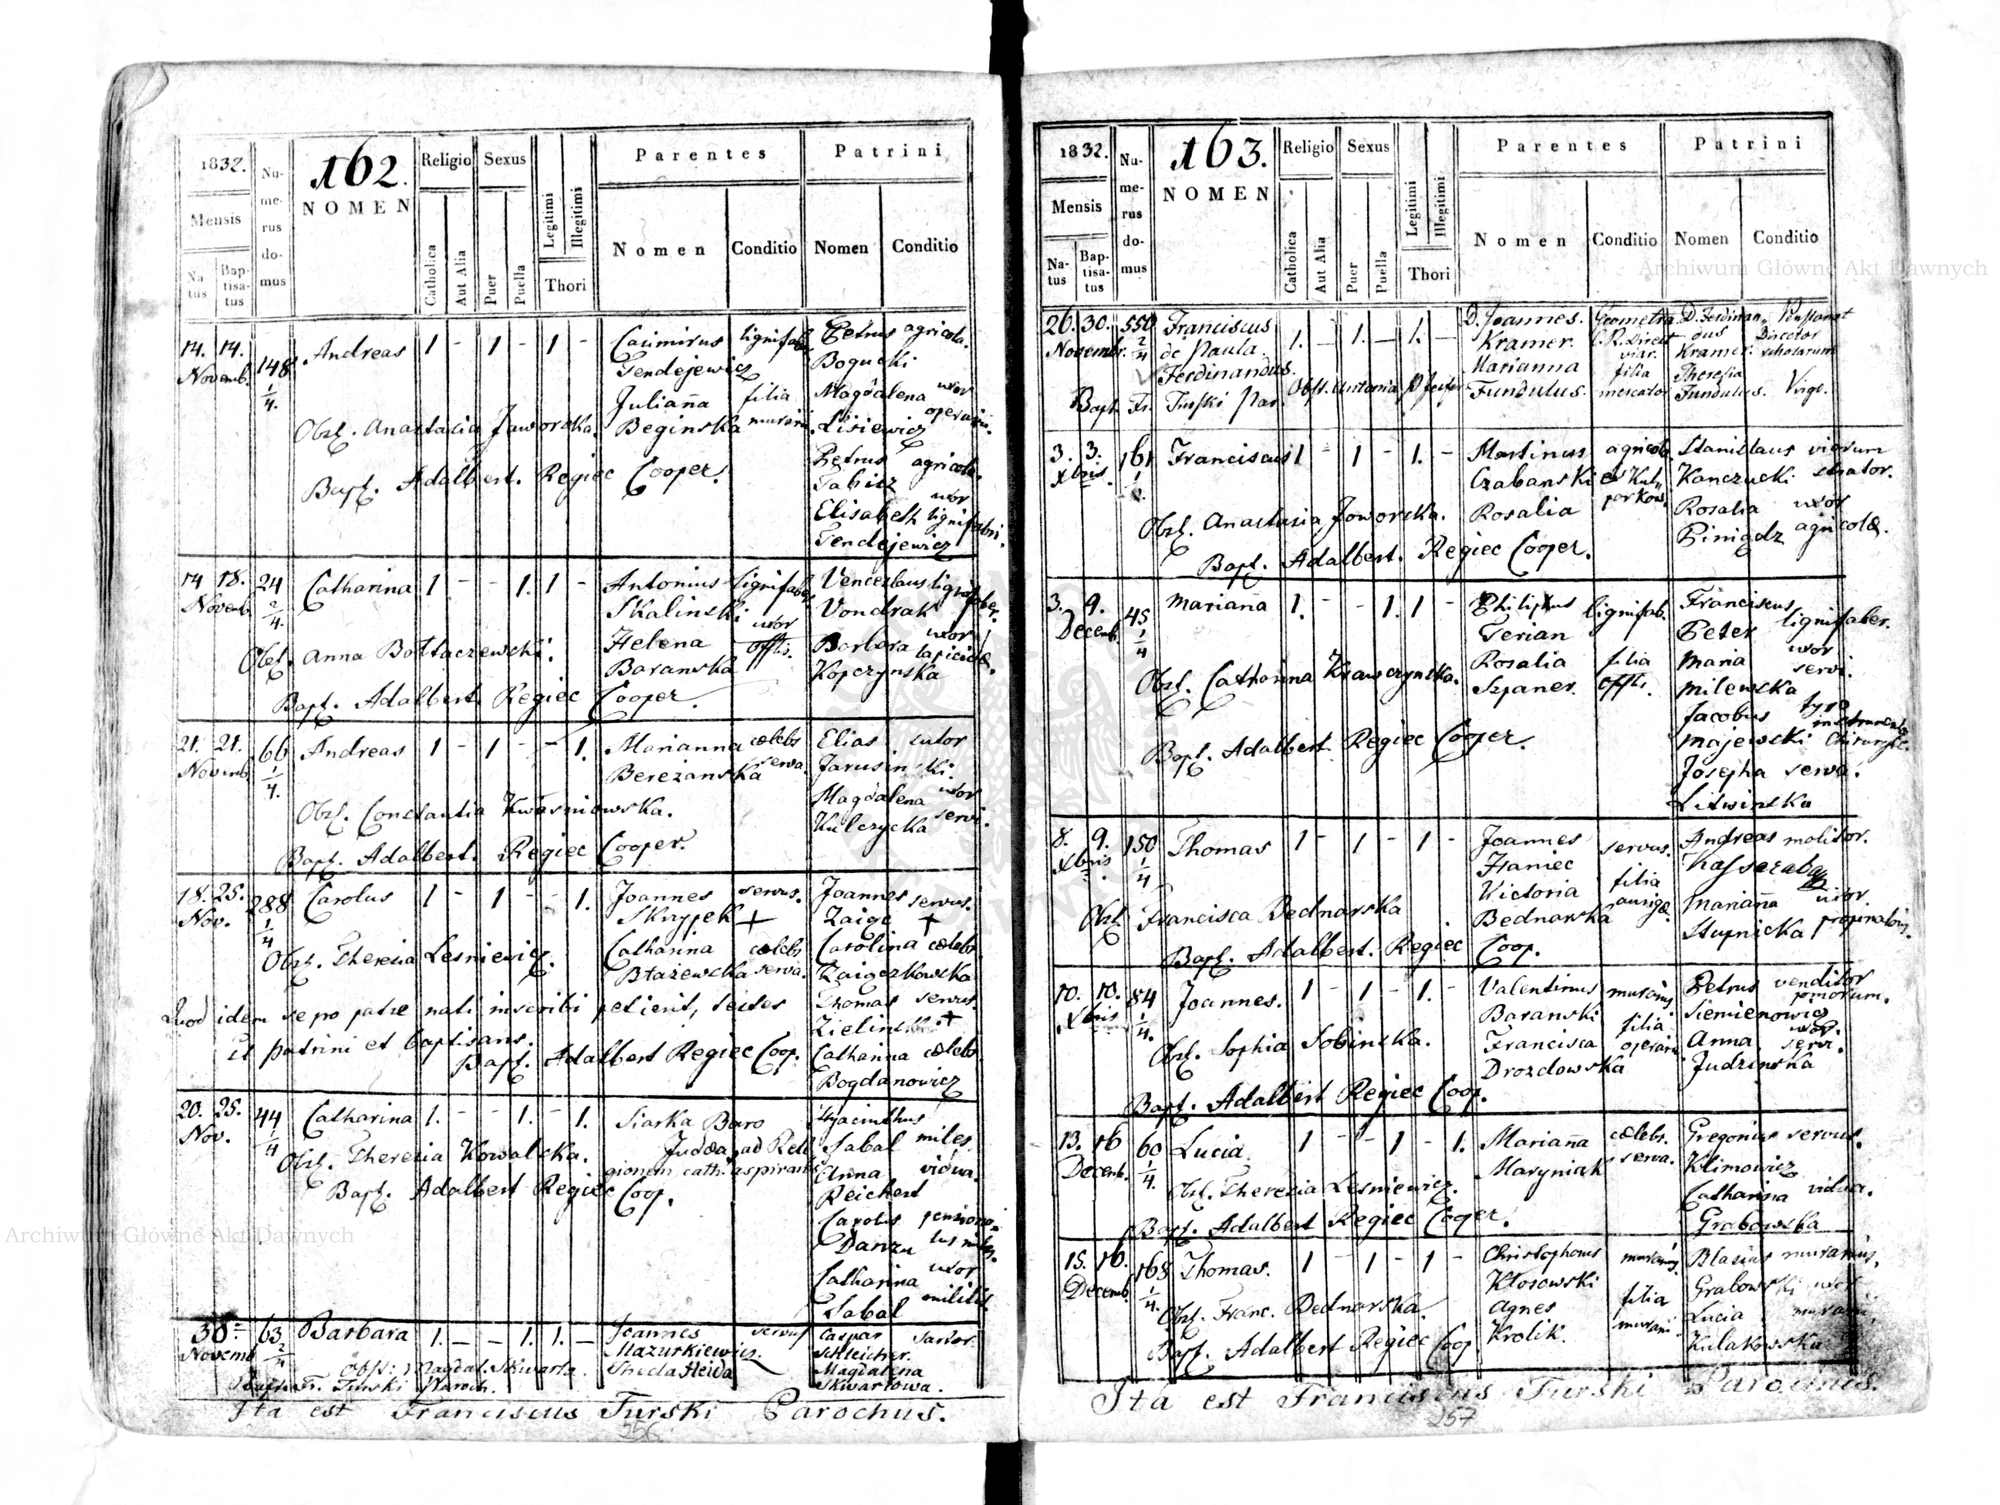 1832.
Mensis
Natus
Baptisatus
Numerus domus
162.
NOMEN
Religio
Catholica
Aut Alia
Sexus
Puer
Puella
Legitimi
Illegitimi
Thori
Parentes
Nomen
Conditio
Patrini
Nomen
Conditio
14. 14. Novemb. 148 1/4. Andreas 1 - 1 - 1 -
Casimirus lignifaber
Tendejewicz
Julianna filia
Beginska murarii.
Petrus agricola.
Bogucki
Magdalena uxor
Lisiewicz operarii.
Petrus agricola.
Elisabeth uxor lignifabri.
Tendejewicz
Obst. Anastasia Jaworska.
Bapt. Adalbert. Regiec Cooper.
14 18. Novemb. 24 2/4. Catharina 1 - - 1. 1 -
Antonius lignifaber
Skalinski
Helena uxor
Baranska offlis.
Venceslaus lignifaber.
Vondrak
Barbara uxor
Kopczynska lapicidæ.
Obst. Anna Bottaczewski.
Bapt. Adalbert. Regiec Cooper.
21. 21. Novemb. 66 1/4. Andreas 1 - 1 - - 1.
Marianna cœlebs
Berezanska serva.
Elias sutor
Jarusinski.
Magdalena uxor
Kulczycka servi.
Obst. Constantia Kwasniowska.
Bapt. Adalbert. Regiec Cooper.
18. 25. Nov. 288 1/4 Carolus 1 - 1 - - 1.
Joannes servus.
Skrzypek +
Catharina cœlebs
Błażewska serva.
Joannes servus.
Zaigc +
Carolina cœlebs.
Zaigczkowska
Thomas servus.
Zielinski +
Catharina cœlebs.
Bogdanowicz
Obst. Theresia Lesniewicz.
Quod idem se pro patre nati inscribi petierit, testes
et patrini et baptisans.
Bapt. Adalbert Regiec Coop.
20. 25. Nov. 44 1/4 Catharina 1. - - 1. - 1.
Siarka Baro
Judæa, ad Religionem cath. aspirans
Hyacinthus
Sabal miles.
Anna vidua.
Reichert
Carolus pensionatus miles.
Danzu
Catharina uxor
Sabal militis.
Obst. Theresia Kowalska.
Bapt. Adalbert Regiec Coop.
30 Novemb 63 2/4 Barbara 1. - - 1. 1. -
Joannes servus
Mazurkiewicz.
Caspar Sartor.
Schleicher.
Magdalena
Skwartowa.
Obst: Magdal. Skwarta.
Bapt. Fr. Turski Paroch.
Ita est Franciscus Turski Parochus.
256
1832.
Mensis
Natus
Baptisatus
Numerus domus
163.
NOMEN
Religio
Catholica
Aut Alia
Sexus
Puer
Puella
Legitimi
Illegitimi
Thori
Parentes
Nomen
Conditio
Patrini
Nomen
Conditio
26. 30. Novembr. 550 2/4 Franciscus de Paula. Ferdinandus. 1. - 1. - 1. -
D. Joannes. Geometra
Kramer. C. R. Direct
viar.
Marianna filia
Fundulus. mercator
D. Ferdinandus
Kramer. Director scholarum
Theresia
Fundulus. Virgo.
Obst. Antonia Pfeifer
Bapt. Fr. Turski Par.
3. 3. Xbris. 161 Franciscus 1 - 1 - 1. -
Martinus agricola
Czabanski
Rosalia
Stanislaus viarum
Kanczucki strator.
Rosalia uxor
Pinigdz agricolæ.
Obst. Anastasia Jaworska.
Bapt. Adalbert. Regiec Cooper.
3. 9. Decemb. 45 1/4 Marianna 1. - - 1. 1 -
Philippus lignifab.
Terian
Rosalia filia
Szpaner. offlis.
Franciscus
Peter lignifaber.
Maria uxor
Milewska servi.
Jacobus tyro
Majewski
Josepha serva.
Litwinska
Obst. Catharina Krawczynska.
Bapt. Adalbert Regiec Cooper.
8. 9. Xbris 150 1/4 Thomas 1 - 1 - 1 -
Joannes servus.
Haniec
Victoria filia
Bednarska aurigæ.
Andreas molitor.
Marianna uxor
Stupnicka propinatoris.
Obst. Francisca Bednarska
Bapt. Adalbert. Regiec Coop.
10. 10. Xbris 84 1/4. Joannes. 1 - 1 - 1. -
Valentinus murarius
Baranski
Francisca filia
Drozdowska operarii
Petrus venditor
Siemienowicz pomorum.
Anna uxor
Judzinska servi.
Obst. Sophia Sobinska.
Bapt. Adalbert Regiec Coop.
13. 16 Decemb. 60 1/4. Lucia. 1 - - 1 - 1.
Marianna cœlebs.
Maryniak serva.
Gregorius servus.
Klimowicz
Catharina vidua.
Grabowska
Obst. Theresia Lesniewicz.
Bapt. Adalbert Regiec Cooper.
15. 16. Decemb. 168 1/4. Thomas. 1 - 1 - 1 -
Christophorus murarius.
Kłosowski
Agnes filia
Krolik. murarii
Blasius murarius.
Grabowski
Lucia uxor
Kulakowska murarii
Obst. Franc. Bednarska
Bapt. Adalbert Regiec Coop
Ita est Franciscus Turski Parochus.
257
Archiwum Główne Akt Dawnych
Archiwum Główne Akt Dawnych